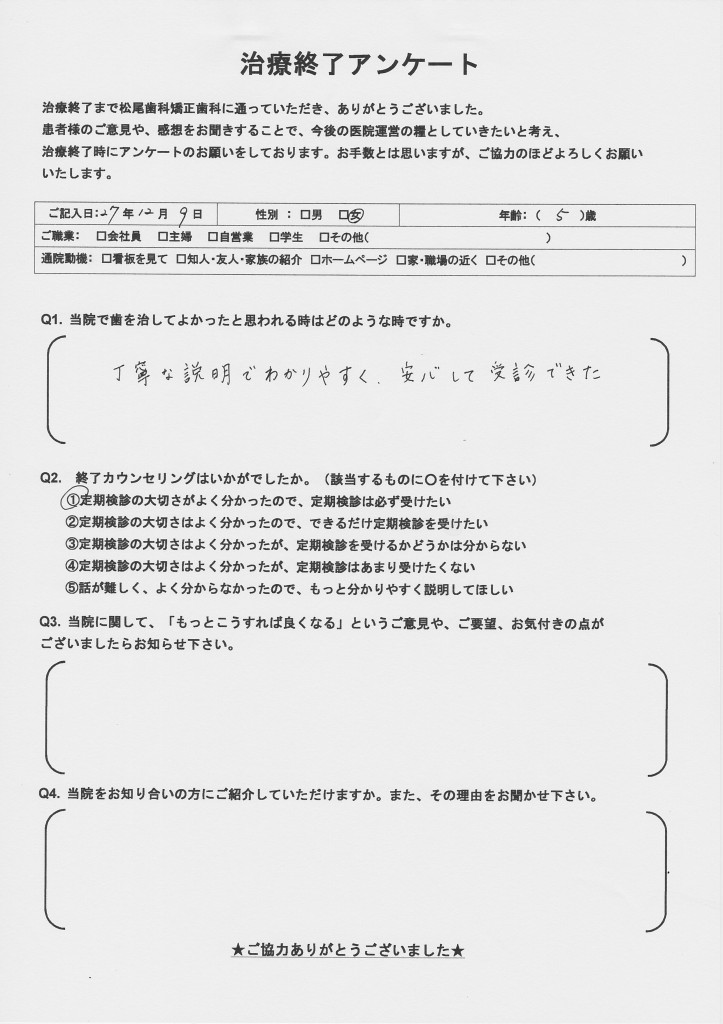 治療終了アンケート
治療終了まで松尾歯科矯正歯科に通っていただき、ありがとうございました。
患者様のご意見や、感想をお聞きすることで、今後の医院運営の糧としていきたいと考え、
治療終了時にアンケートのお願いをしております。お手数とは思いますが、ご協力のほどよろしくお願い
いたします。
ご記入日:27年12月9日 性別 : □男 □女 年齢:( 5 )歳
ご職業: □会社員 □主婦 □自営業 □学生 □その他( )
通院動機: □看板を見て □知人・友人・家族の紹介 □ホームページ □家・職場の近く □その他( )
Q1. 当院で歯を治してよかったと思われる時はどのような時ですか。
丁寧な説明でわかりやすく、安心して受診できた
Q2. 終了カウンセリングはいかがでしたか。（該当するものに〇を付けて下さい）
①定期検診の大切さがよく分かったので、定期検診は必ず受けたい
②定期検診の大切さはよく分かったので、できるだけ定期検診を受けたい
③定期検診の大切さはよく分かったが、定期検診を受けるかどうかは分からない
④定期検診の大切さはよく分かったが、定期検診はあまり受けたくない
⑤話が難しく、よく分からなかったので、もっと分かりやすく説明してほしい
Q3. 当院に関して、「もっとこうすれば良くなる」というご意見や、ご要望、お気付きの点が
ございましたらお知らせ下さい。
Q4. 当院をお知り合いの方にご紹介していただけますか。また、その理由をお聞かせ下さい。
★ご協力ありがとうございました★